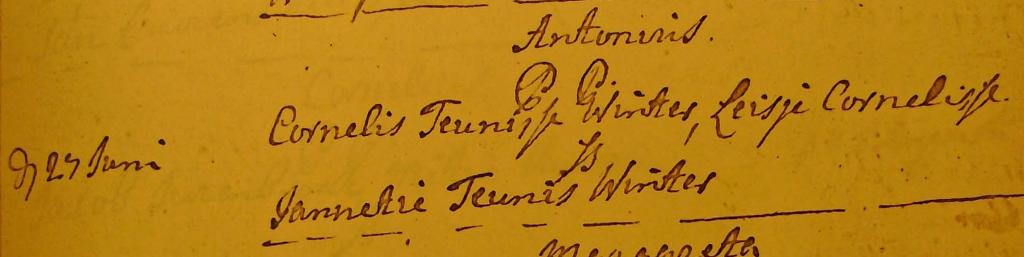 Antonius.
P P
Cornelis Teunisse Winter, Leisje Cornelisse.
d 27 Juni
Ss
Jannetie Teunis Winter
Margreta